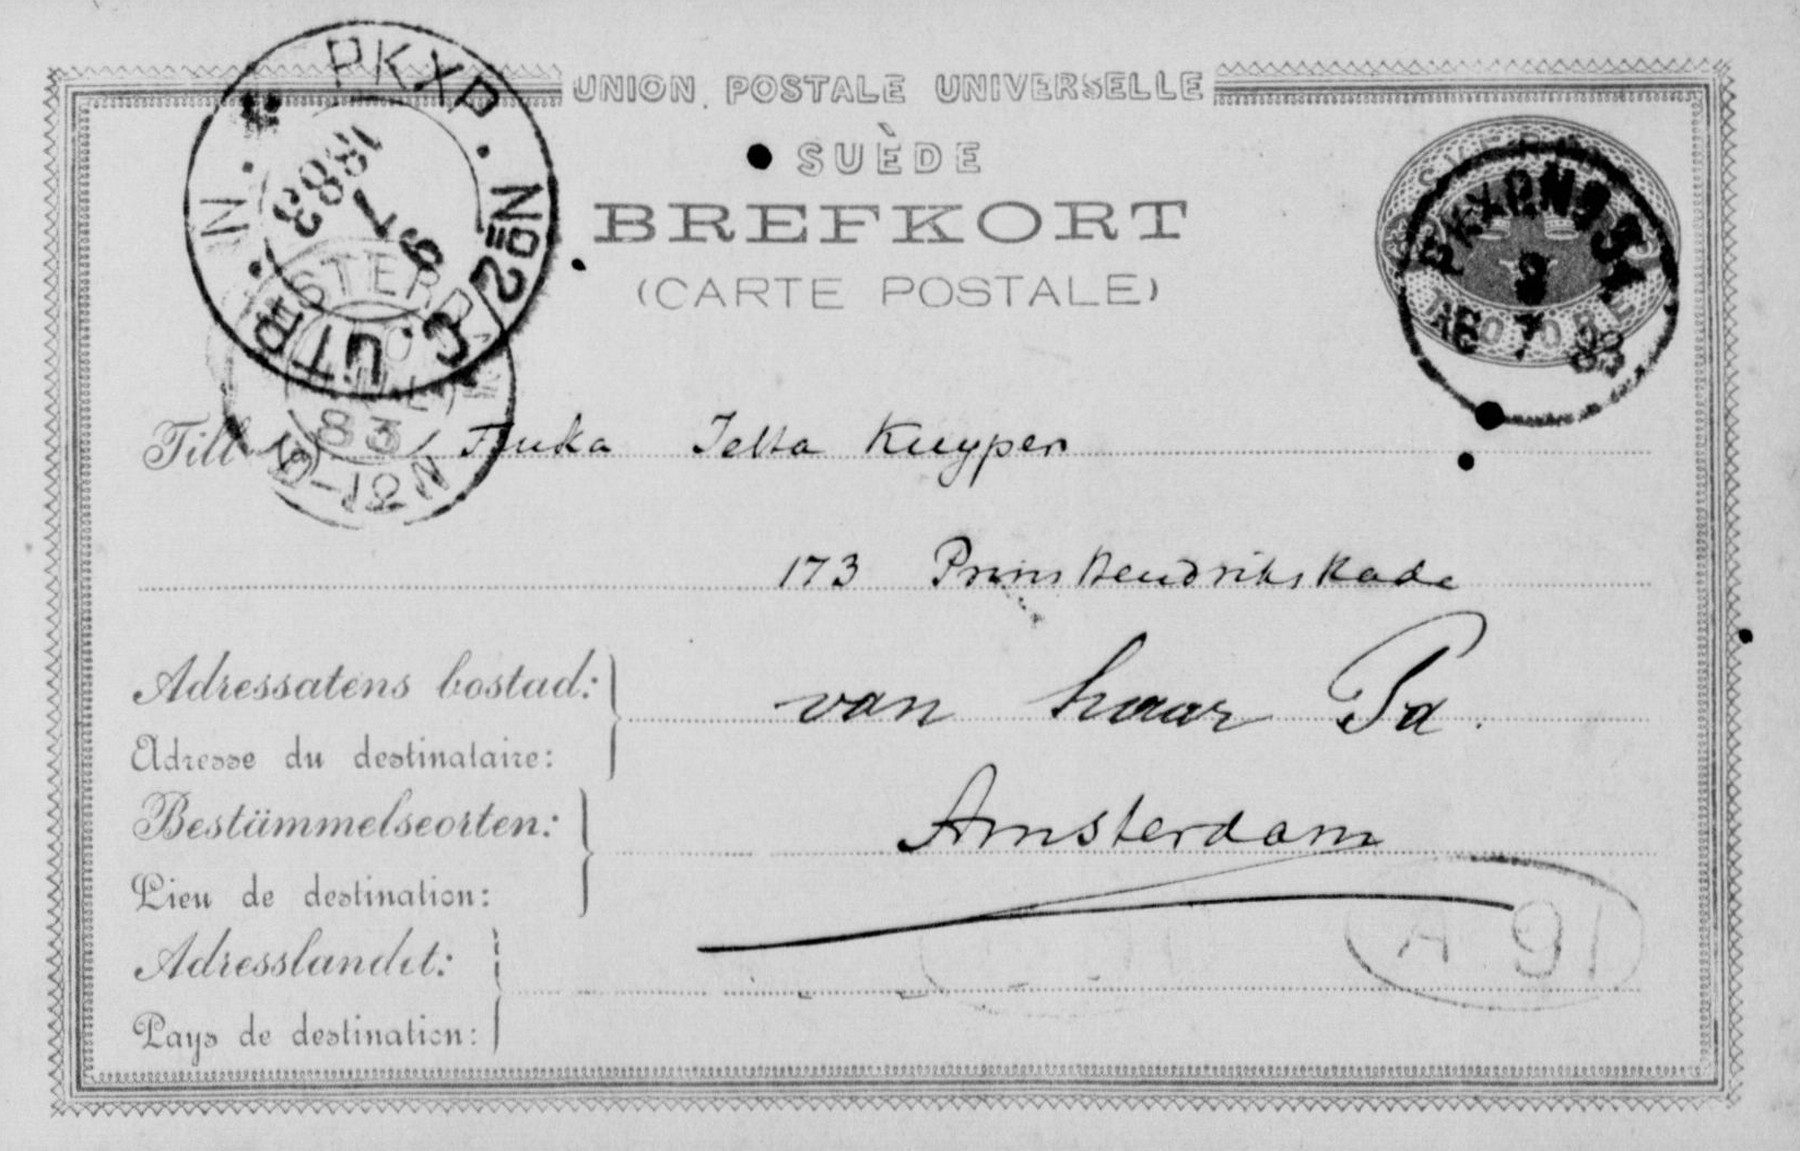 UNION POSTALE UNIVERSELLE
SUÈDE
BREFKORT
(CARTE POSTALE)
PKXP. No 2. UTR. N.
9 7
1883
83
PKXP No 
8
7
Till Jetta Kuyper
173 Prins Hendrikskade
Adressatens bostad:
van haar Pa.
Adresse du destinataire:
Bestämmelseorten:
Amsterdam
Lieu de destination:
A 91
Adresslandet:
Pays de destination: